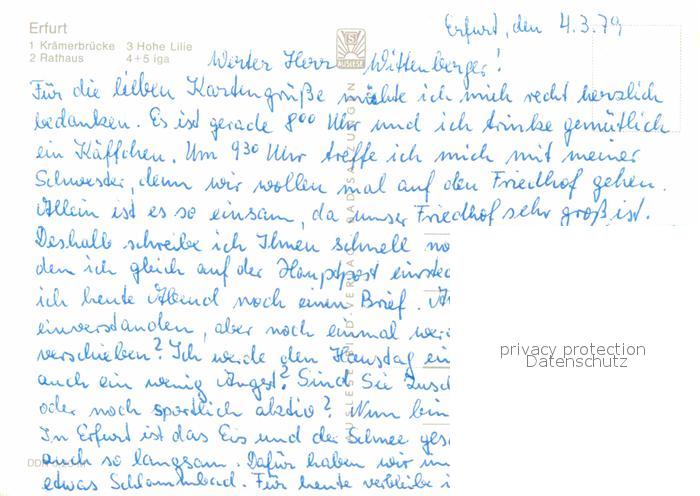 Erfurt
1 Krämerbrücke 3 Hohe Lilie
2 Rathaus 4+5 iga
AUSLESE
Erfurt, den 4.3.79
Werter Herr Wittenberger!
Für die lieben Kartengrüße möchte ich mich recht herzlich
bedanken. Es ist gerade 8⁰⁰ Uhr und ich trinke gemütlich
ein Käffchen. Um 9³⁰ Uhr treffe ich mich mit meiner
Schwester, denn wir wollen mal auf den Friedhof gehen.
Allein ist es so einsam, da unser Friedhof sehr groß ist.
Deshalb schreibe ich Ihnen schnell no
den ich gleich auf der Hauptpost einstec
ich heute Abend noch einen Brief.
einverstanden, aber noch einmal wer
verschieben? Ich werde den Haustag ei
auch ein wenig Angst? Sind Sie Zusc
oder noch sportlich aktiv? Nun bin
In Erfurt ist das Eis und der Schnee ges
auch so langsam. Dafür haben wir
etwas Schlammbad. Für heute verbleibe i
privacy protection
Datenschutz